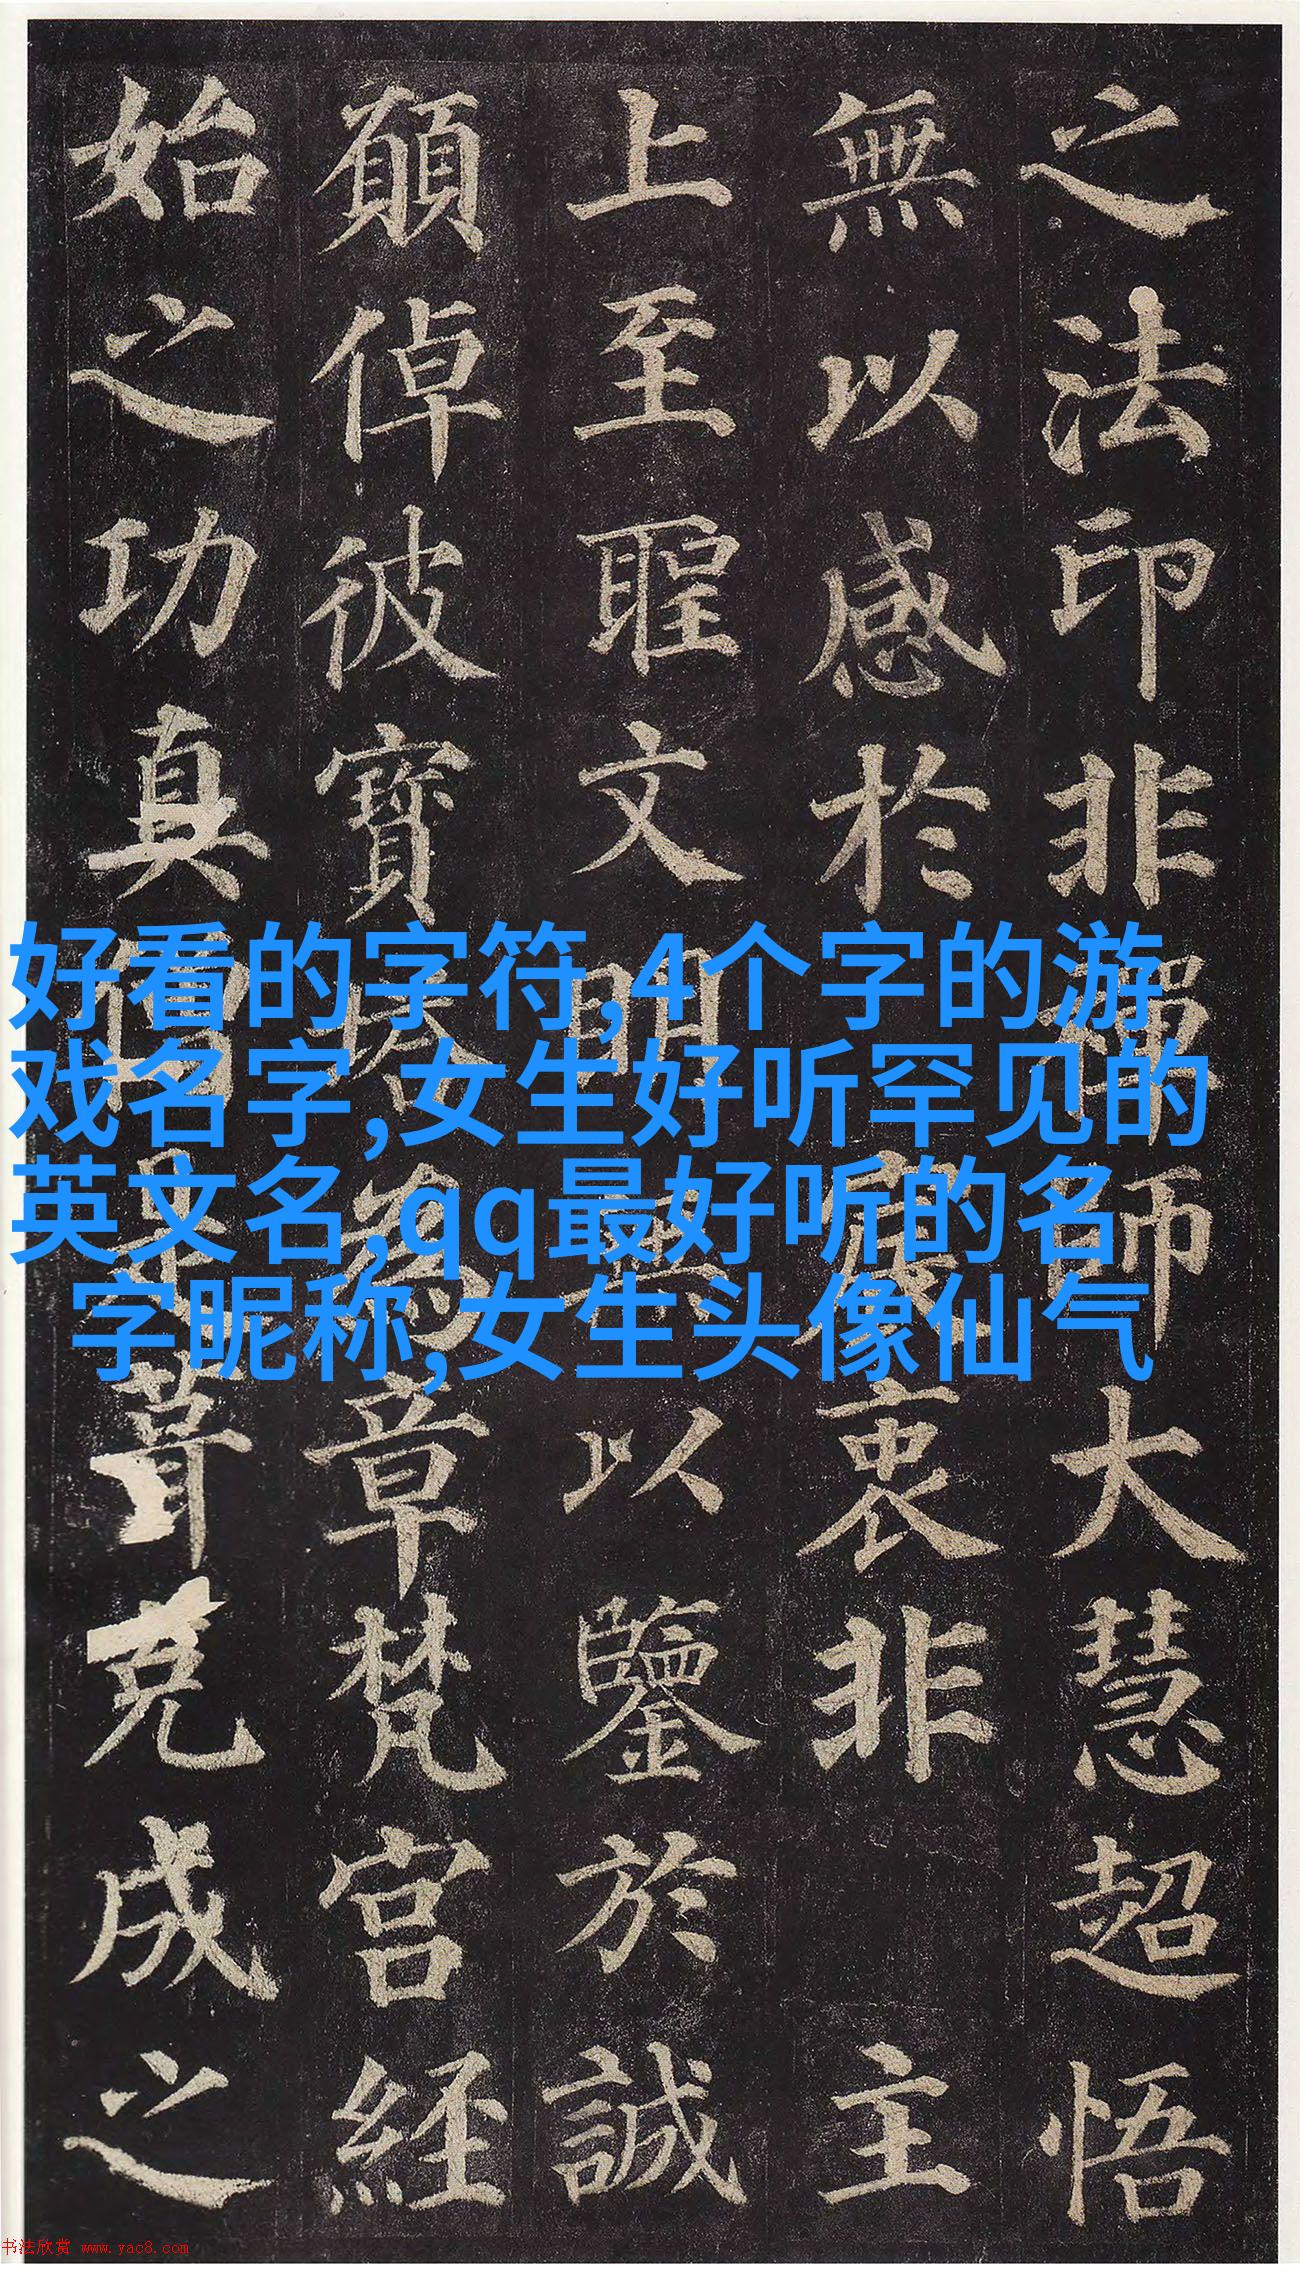 之法印非禪師大慧超悟
無以感於宸衷非主
上至聖文明無以鑒於誠
願倬彼寶塔為章梵宮經
始之功真僧是葺克成之
好看的字符,4个字的游
戏名字,女生好听罕见的
英文名,qq最好听的名
字昵称,女生头像仙气
书法欣赏 www.yac8.com